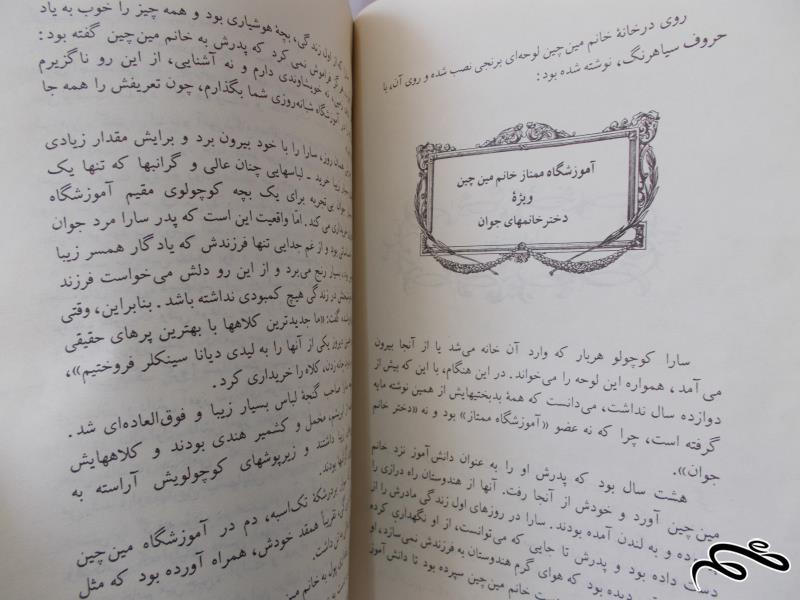 روی درخانهٔ خانم مین‌چین لوحه‌ای برنجی نصب شده و روی آن، با
حروف سیاهرنگ، نوشته شده بود:
آموزشگاه ممتاز خانم مین چین
ویژهٔ
دختر خانمهای جوان
سارا کوچولو هربار که وارد آن خانه می‌شد یا از آنجا بیرون
می‌آمد، همواره این لوحه را می‌خواند. در این هنگام، با این که بیش از
دوازده سال نداشت، می‌دانست که همهٔ بدبختیهایش از همین نوشته مایه
گرفته است، چرا که نه عضو «آموزشگاه ممتاز» بود و نه «دختر خانم
جوان».
هشت سال بود که پدرش او را به عنوان دانش‌آموز نزد خانم
مین‌چین آورد و خودش از آنجا رفت. آنها از هندوستان راه درازی را
و به لندن آمده بودند. سارا در روزهای اول زندگی مادرش را از
دست داده بود و پدرش تا جایی که می‌توانست، از او نگهداری کرده
دیده بود که هوای گرم هندوستان به فرزندش نمی‌سازد، او
خانم مین‌چین سپرده بود تا دانش‌آموز
که از اول زندگی، بچهٔ هوشیاری بود و همه چیز را خوب به یاد
هرگز فراموش نمی‌کرد که پدرش به خانم مین‌چین گفته بود:
نه خویشاوندی دارم و نه آشنایی، از این رو ناگزیرم
آموزشگاه شبانه‌روزی شما بگذارم، چون تعریفش را همه جا
همان روز، سارا را با خود بیرون برد و برایش مقدار زیادی
زیبا خرید ـ لباسهایی چنان عالی و گرانبها که تنها یک
جوان بی‌تجربه برای یک بچه کوچولوی مقیم آموزشگاه
خریداری می‌کند. امّا واقعیت این است که پدر سارا مرد جوان
بود و از غم جدایی تنها فرزندش که یادگار همسر زیبا
بسیار رنج می‌برد و از این رو دلش می‌خواست فرزند
در زندگی هیچ کمبودی نداشته باشد. بنابراین، وقتی
گفت: «ما جدیدترین کلاهها با بهترین پرهای حقیقی
دیروز یکی از آنها را به لیدی دیانا سینکلر فروختیم»،
کلاه را خریداری کرد.
صاحب گنجهٔ لباس بسیار زیبا و فوق‌العاده‌ای شد.
ابریشم، مخمل و کشمیر هندی بودند و کلاههایش
زیبا داشتند و زیرپوشهای کوچولویش آراسته به
بودند.
بردرشکهٔ تک‌اسبه، دم در آموزشگاه مین‌چین
تقریباً همقد خودش، همراه آورده بود که مثل
داشت.
به خانم مین